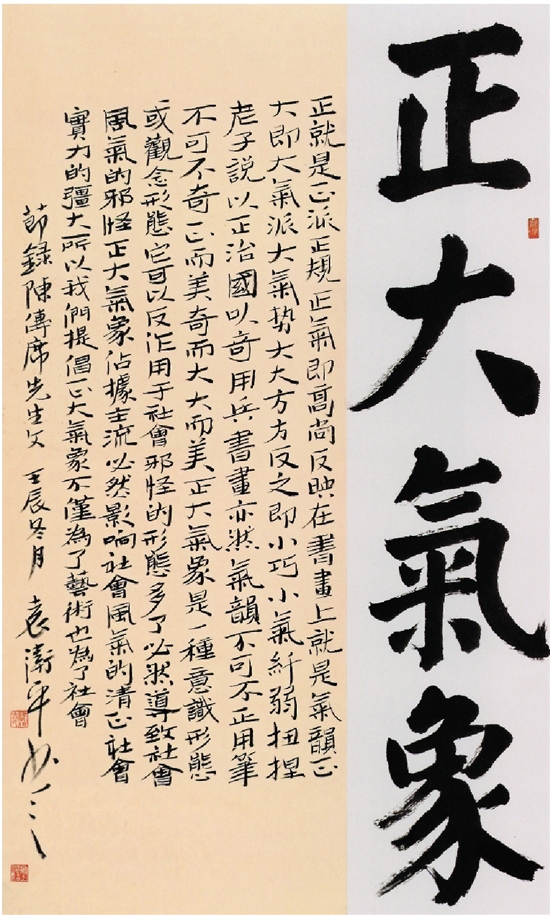 正大氣象
正就是正派正規正氣即高尚反映在書畫上就是氣韻正
大即大氣派大氣势大大方方反之即小巧小氣紆弱扭捏
老子說以正治國以奇用兵書畫亦然氣韻不可不正用筆
不可不奇正而美奇而大大而美正大氣象是一種意識形態
或觀念形態它可以反作用于社會邪怪的形態多了必然導致社會
風氣的邪怪正大氣象佔據主流必然影响社會風氣的清正社會
實力的彊大所以我們提倡正大氣象不僅為了藝術也為了社會
節録陳傳席先生文 壬辰冬月 袁衛平書